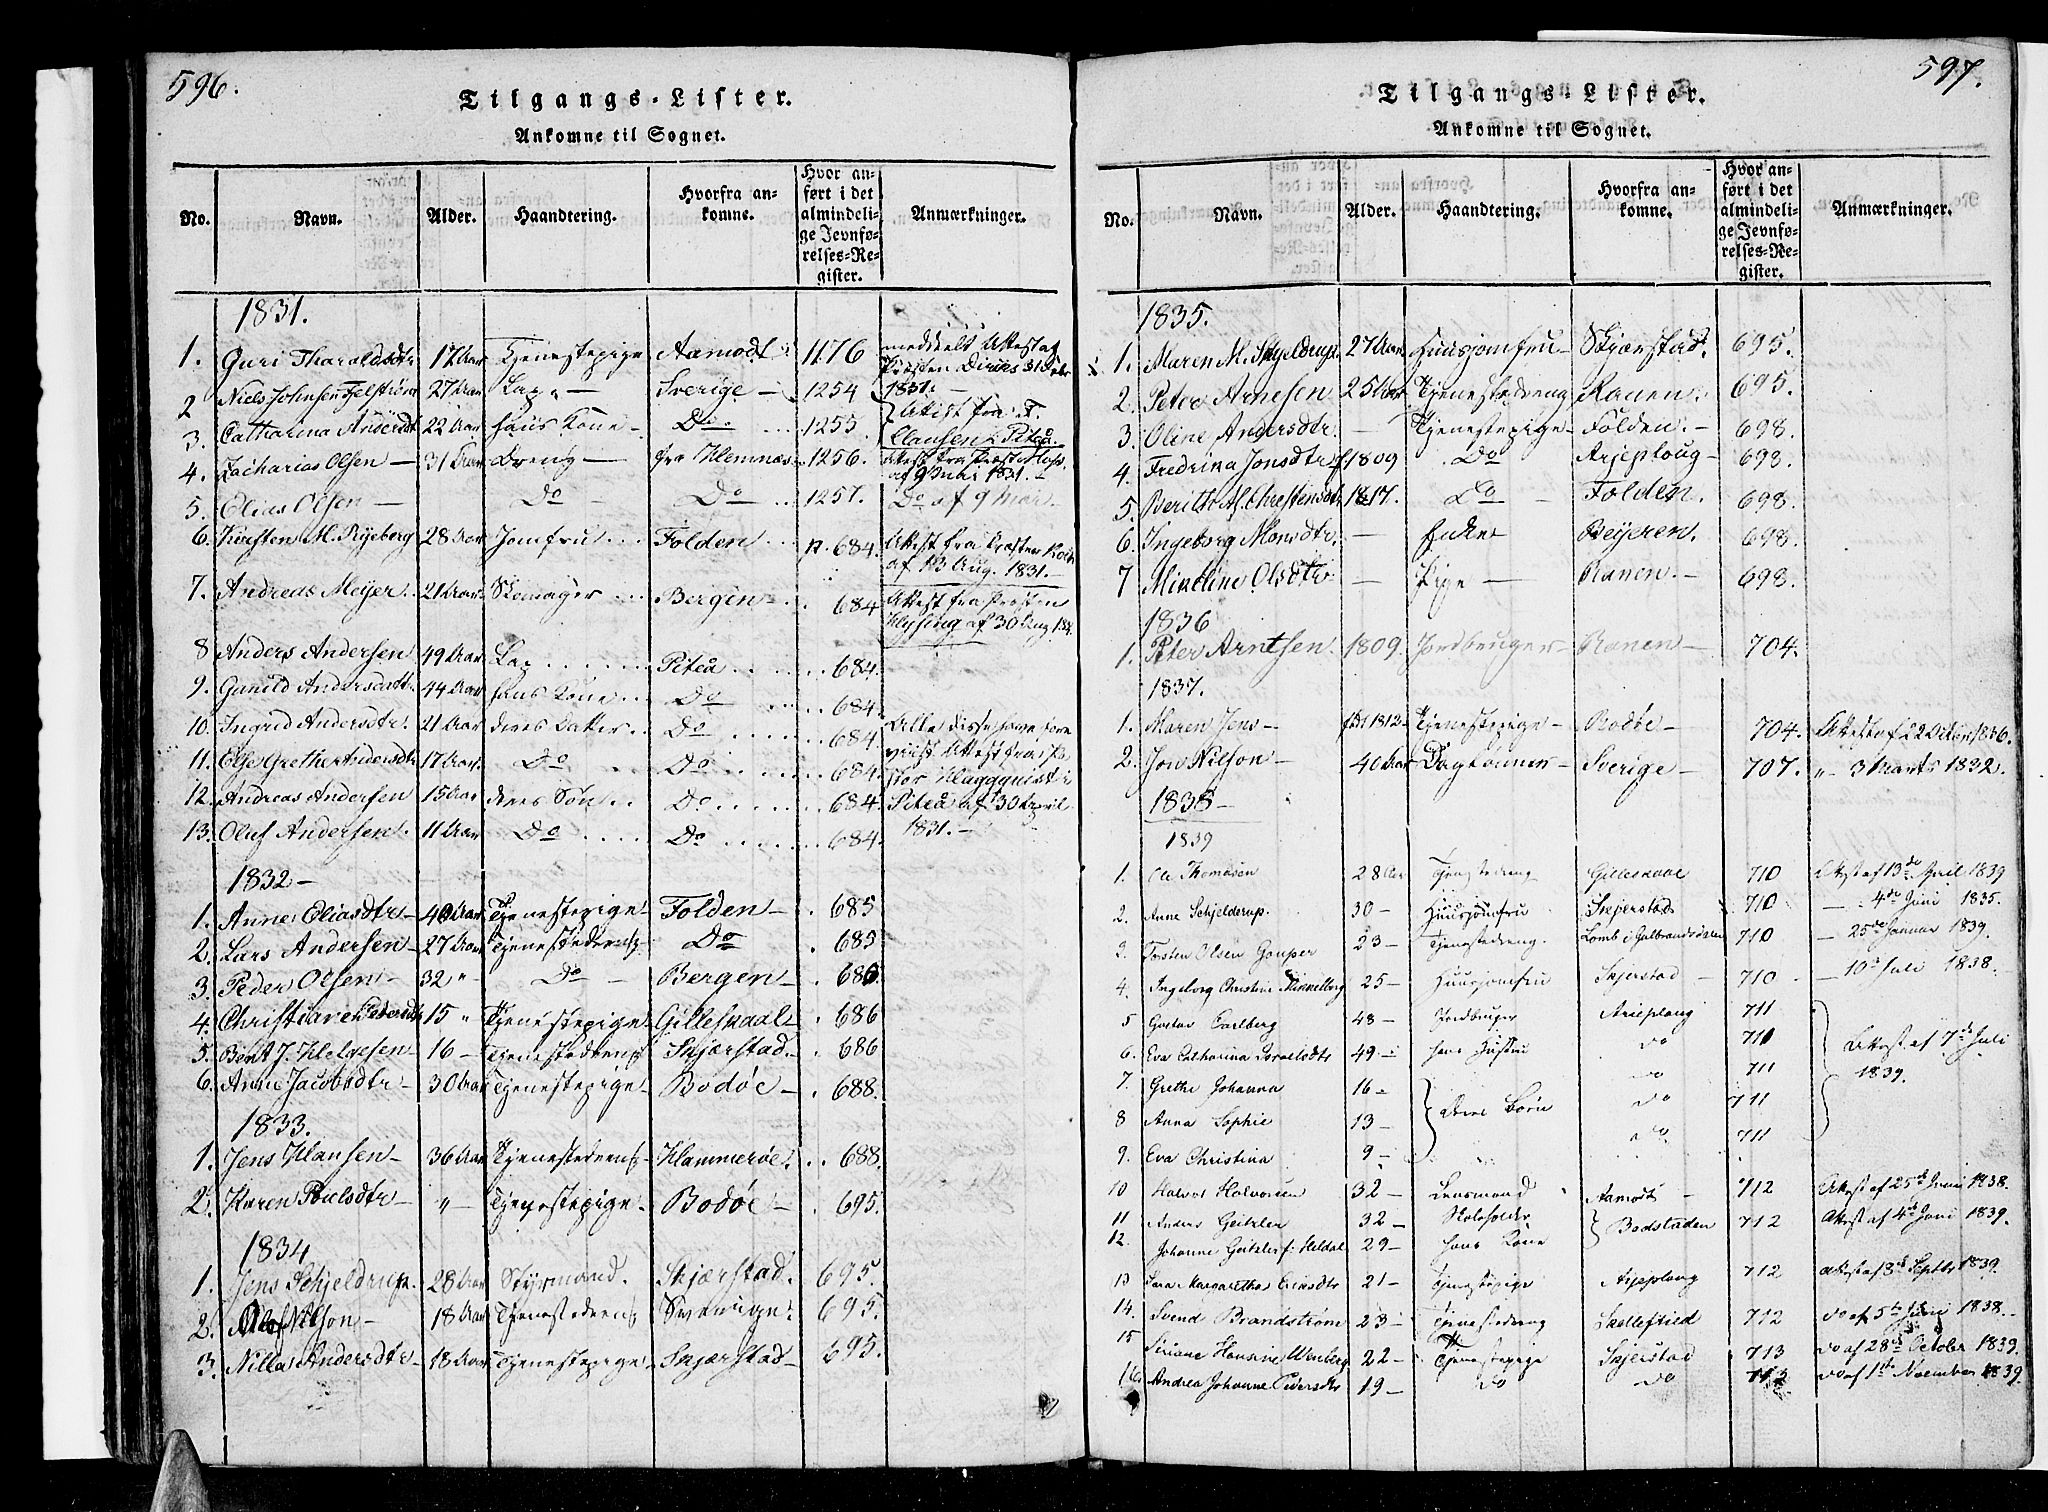 596.
Tilgangs-Lister.
Ankomne til Sognet.
No. Navn. Alder. Haandtering. Hvorfra ankomne. Hvor anført i det almindelige Jevnførelses-Register. Anmærkninger.
1831.
1. Guri Tharaldsdtr 17 Aar Tjenestepige Aamodt 1176 meddelt Attest af Præsten Diriks 31 Debr 1831.
2 Niels Johnsen Fjelstrøm 27 Aar Lap Sverige 1254
3. Catharina Andersdt 22 Aar hans Kone Do 1255 Attest fra F. Clausen i Piteå.
4. Zacharias Olsen 31 Aar Dreng fra Hemnæs 1256.
5. Elias Olsen Do Do 1257. Do af 9 Mar.
6. Kirsten M. Rijeberg 28 Aar Jomfru Folden p. 684. Attest fra Præsten af 13 Aug. 1831.
7. Andreas Meyer 21 Aar Skomager Bergen 684 Attest fra Præsten Hysing af 30 Aug 184.
8 Anders Andersen 49 Aar Lap Piteå 684.
9. Gunild Andersdatt 44 Aar hans Kone Do 684.
10. Ingrid Andersdtr. 21 Aar deres Datter Do 684 Alle disse have fore
11. Else Grethe Andersdtr 17 Aar. Do Do 684. viist Attest fra Pa
12. Andreas Andersen 15 Aar deres Søn Do 684. stor Haggquist i Piteå af 30 April
13. Oluf Andersen. 11 Aar Do Do 684. 1831.
1832
1. Anne Eliasdtr 40 Aar Tjenestepige Folden 685
2. Lars Andersen 27 Aar Tjenestedreng Do 685
3. Peder Olsen 32 " Do Bergen 686.
4. Christiane Pedersdtr 15 " Tjenestepige Gilleskaal 686
5. Bent J. Helgesen 16 Tjenestedreng Skjærstad 686
6. Anne Jacobsdtr 30 Aar Tjenestepige Bodøe 688.
1833.
1. Jens Hansen 36 Aar Tjenestedreng Hammerøe. 688.
2. Karen Poulsdtr " Tjenestepige Bodøe 695.
1834
1. Jens Schjeldrup. 28 Aar Styrmand. Skjærstad. 695.
2. Olof Nilson 18 Aar Tjenestedreng Sverrige. 695.
3. Nilla Andersdtr 18 Aar Tjenestepige Skjærstad 695.
597.
Tilgangs-Lister.
Ankomne til Sognet.
No. Navn. Alder. Haandtering. Hvorfra ankomne. Hvor anført i det almindelige Jevnførelses-Register. Anmærkninger.
1835.
1. Maren M. Skjeldrup. 27 Aar Huusjomfru Skjærstad. 695.
2. Peter Arnesen 25 Aar Tjenestedreng Ranen. 695.
3. Oline Andersdtr. Tjenestepige Folden. 698.
4. Fredrina Jonsdtr f 1809 Do Arjeploug 698.
5. Berith M. Christensdtr 1817. Do Folden. 698.
6. Ingeborg Monsdtr. Enke Beijeren. 698.
7 Mindline Olsdtr Pige Ranen. 698.
1836
1. Peter Arntsen. 1809. Jordbruger Ranen 704.
1837.
1. Maren Jens født 1812 Tjenestepige Bodøe 704. Attest af 22 October 1836.
2. Jon Nilson 40 Aar Dagtønner Sverige 707. " 3 Marts 1832.
1838
1839
1. Ole Thomasen 28 Aar Tjenestedreng Gilleskaal 710 Attest af 13de April 1839
2. Anne Schjelderup. 30 Huusjomfru Skjerstad 710 4de Juni 1835.
3. Torsten Olsen Gouper 23 Tjenestedreng. Lomb i Gulbrandsdalen 710 25de Januar 1839.
4. Ingeborg Christine Minnelborg 25 Huusjomfru Skjerstad 710 10de Juli 1838.
5 Gustav Carlberg 48 Jordbruger Arieploug 711
6. Eva Catharina Israelsdtr 49 hans Hustru do 711 Attest af 7de Juli
7. Grethe Johanna 16 do 711 1839.
8 Anna Sophie 13 Deres Børn do 711
9. Eva Christina 9 do 711
10 Halvor Halvorsen 32 Lensmand Aamodt 712 Attest af 25de Juni 1838.
11 Anders Geitzler 32 Skoleholder Badstaden 712 Attest af 4de Juni 1839.
12. Johanne Geitzler f: Heldal 29 hans Kone
13 Sara Margaretha Eriksdtr 21 Tjenstepige Arjeploug 712 Attest af 8de Septbr 1839.
14. Svend Brandstrøm 23 Tjenstedreng Skelleftield 712 do af 5te Juni 1838.
15 Seriane Hansine Wenberg 22 Tjenstepige Skjerstad 713 do af 28de October 1839.
16. Andrea Johanne Pedersdtr 19 do do 713 do af 1ste November 1839.